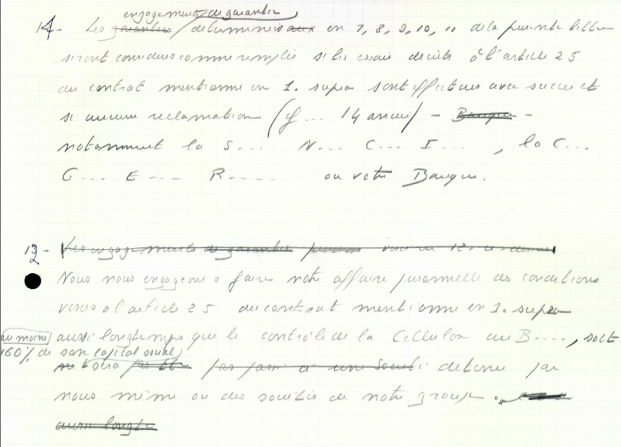 engagements de garantie
14 - Les garanties déterminées aux en 7, 8, 9, 10, 11 de la présente lettre
seront considérés comme remplis si les essais décrits à l'article 25
du contrat mentionné en 1. supra sont effectués avec succès et
si aucune réclamation (cf... 14 ancien) - Banque -
notamment la S... N... C... I... , la C...
G... E... R.... ou votre Banque.
13 - Les engagements de garantie
2
Nous nous engageons à faire notre affaire personnelle des conditions
visées à l'article 25 du contrat mentionné en 1. supra
au moins aussi longtemps que le contrôle de la Cellulose du B...., soit
60% de son capital social
sera par détenu par
nous même ou des sociétés de notre groupe.
aussi longte